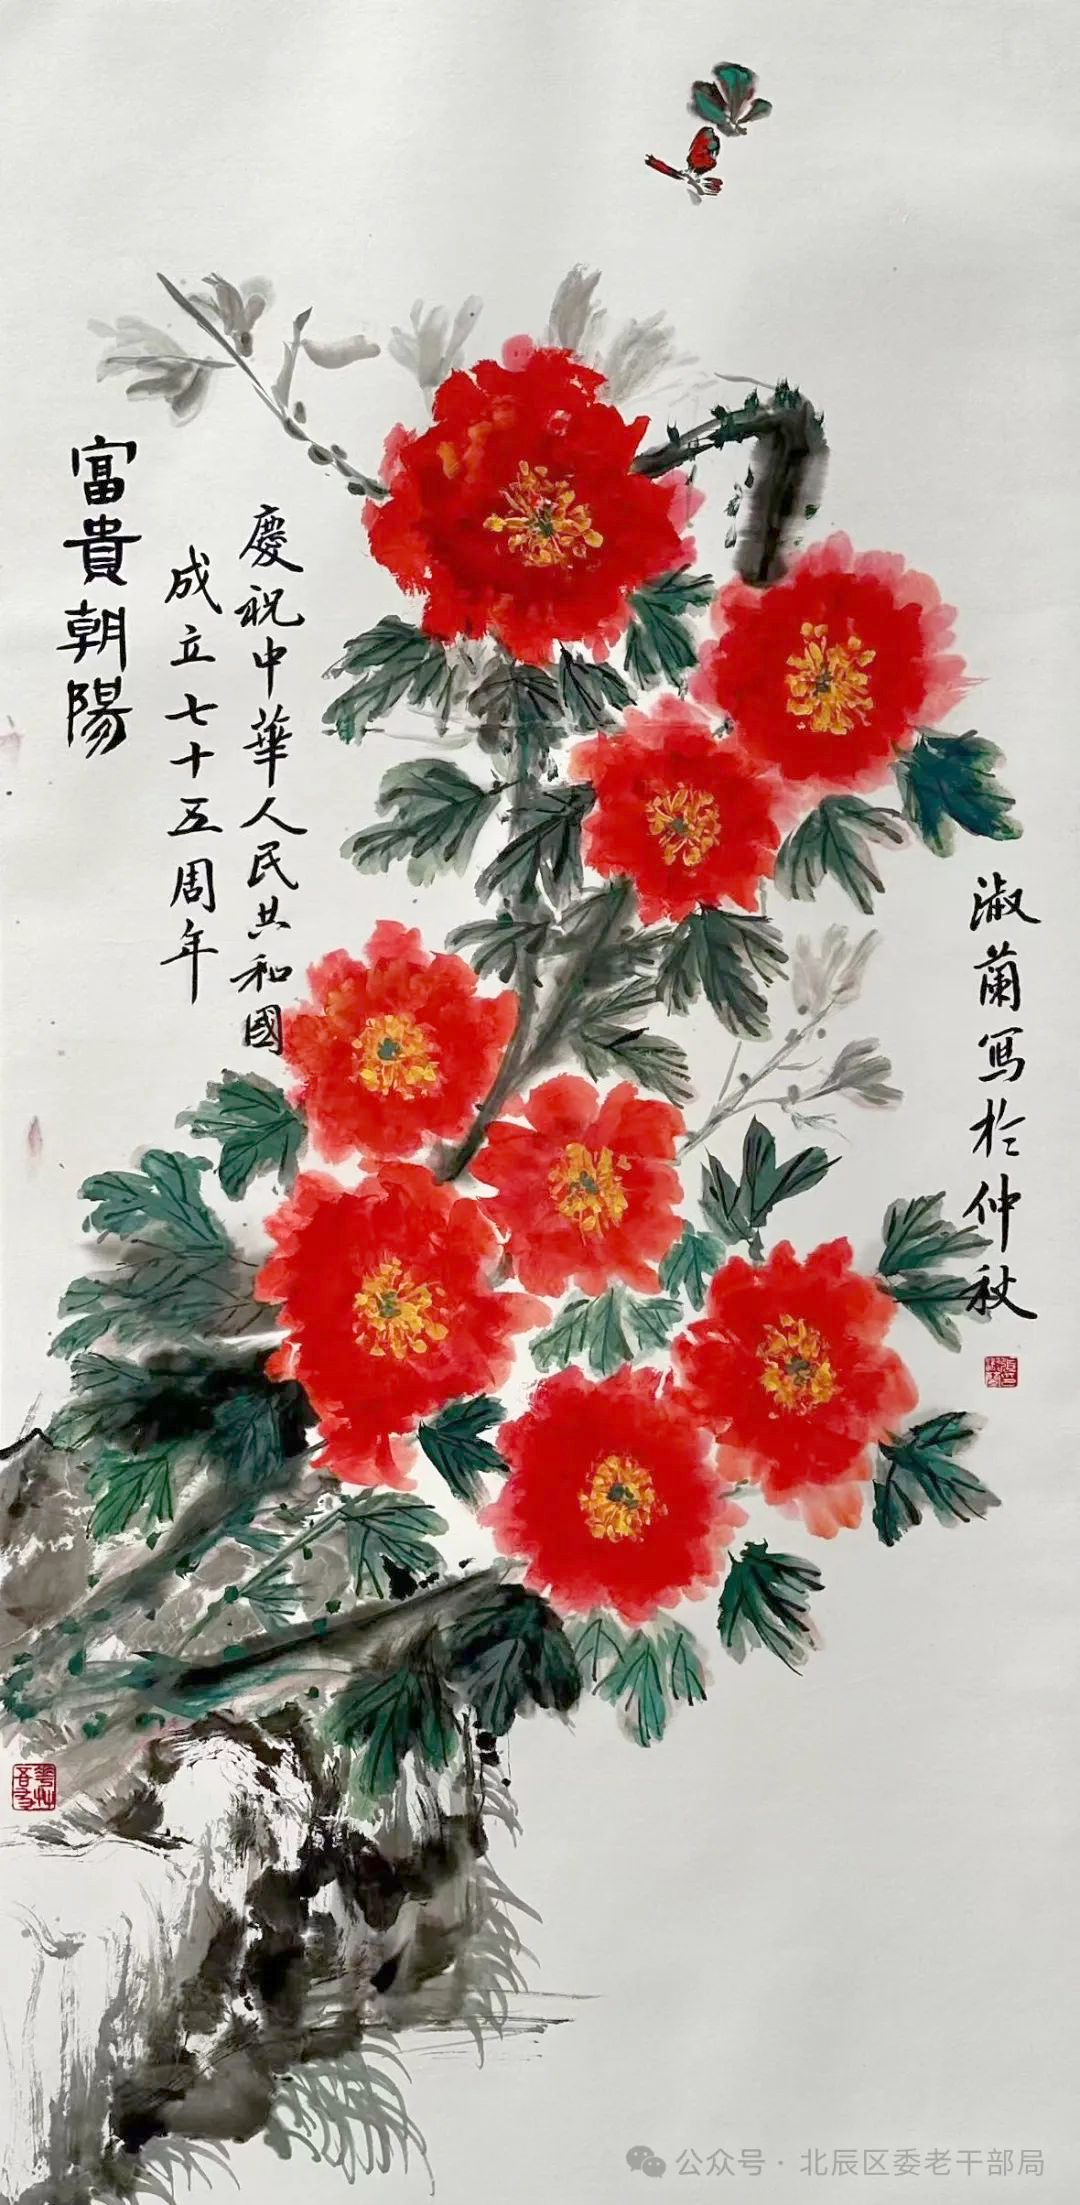 富貴朝陽
慶祝中華人民共和國
成立七十五周年
淑蘭寫於仲秋
公众号·北辰区委老干部局